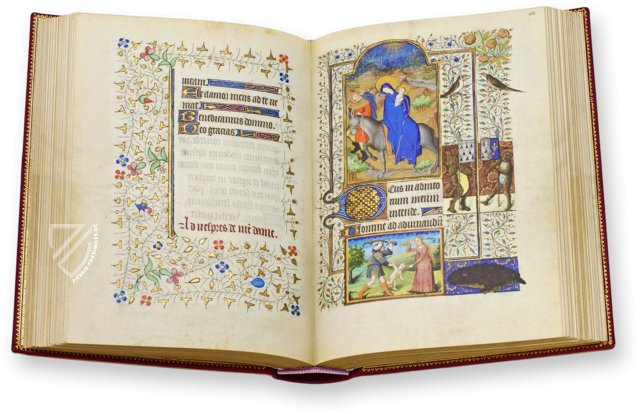 meam
Et clamor meus ad te ve
mat
Benedicamus domino.
Deo gracias
Ad vespres de nre dame.
Eus in adiuto
rium meum
intende.
Domine ad adiuuandu